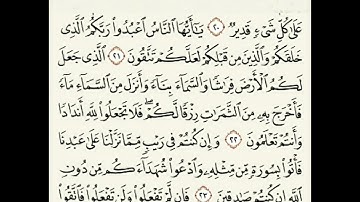 عَلَىٰ كُلِّ شَىْءٍ قَدِيرٌ ٢٠ يَـٰٓأَيُّهَا ٱلنَّاسُ ٱعْبُدُوا۟ رَبَّكُمُ ٱلَّذِى
خَلَقَكُمْ وَٱلَّذِينَ مِن قَبْلِكُمْ لَعَلَّكُمْ تَتَّقُونَ ٢١ ٱلَّذِى جَعَلَ
لَكُمُ ٱلْأَرْضَ فِرَٰشًا وَٱلسَّمَآءَ بِنَآءً وَأَنزَلَ مِنَ ٱلسَّمَآءِ مَآءً
فَأَخْرَجَ بِهِۦ مِنَ ٱلثَّمَرَٰتِ رِزْقًا لَّكُمْ ۖ فَلَا تَجْعَلُوا۟ لِلَّهِ أَندَادًا
وَأَنتُمْ تَعْلَمُونَ ٢٢ وَإِن كُنتُمْ فِى رَيْبٍ مِّمَّا نَزَّلْنَا عَلَىٰ عَبْدِنَا
فَأْتُوا۟ بِسُورَةٍ مِّن مِّثْلِهِۦ وَٱدْعُوا۟ شُهَدَآءَكُم مِّن دُونِ
ٱللَّهِ إِن كُنتُمْ صَـٰدِقِينَ ٢٣ فَإِن لَّمْ تَفْعَلُوا۟ وَلَن تَفْعَلُوا۟ فَٱتَّقُوا۟